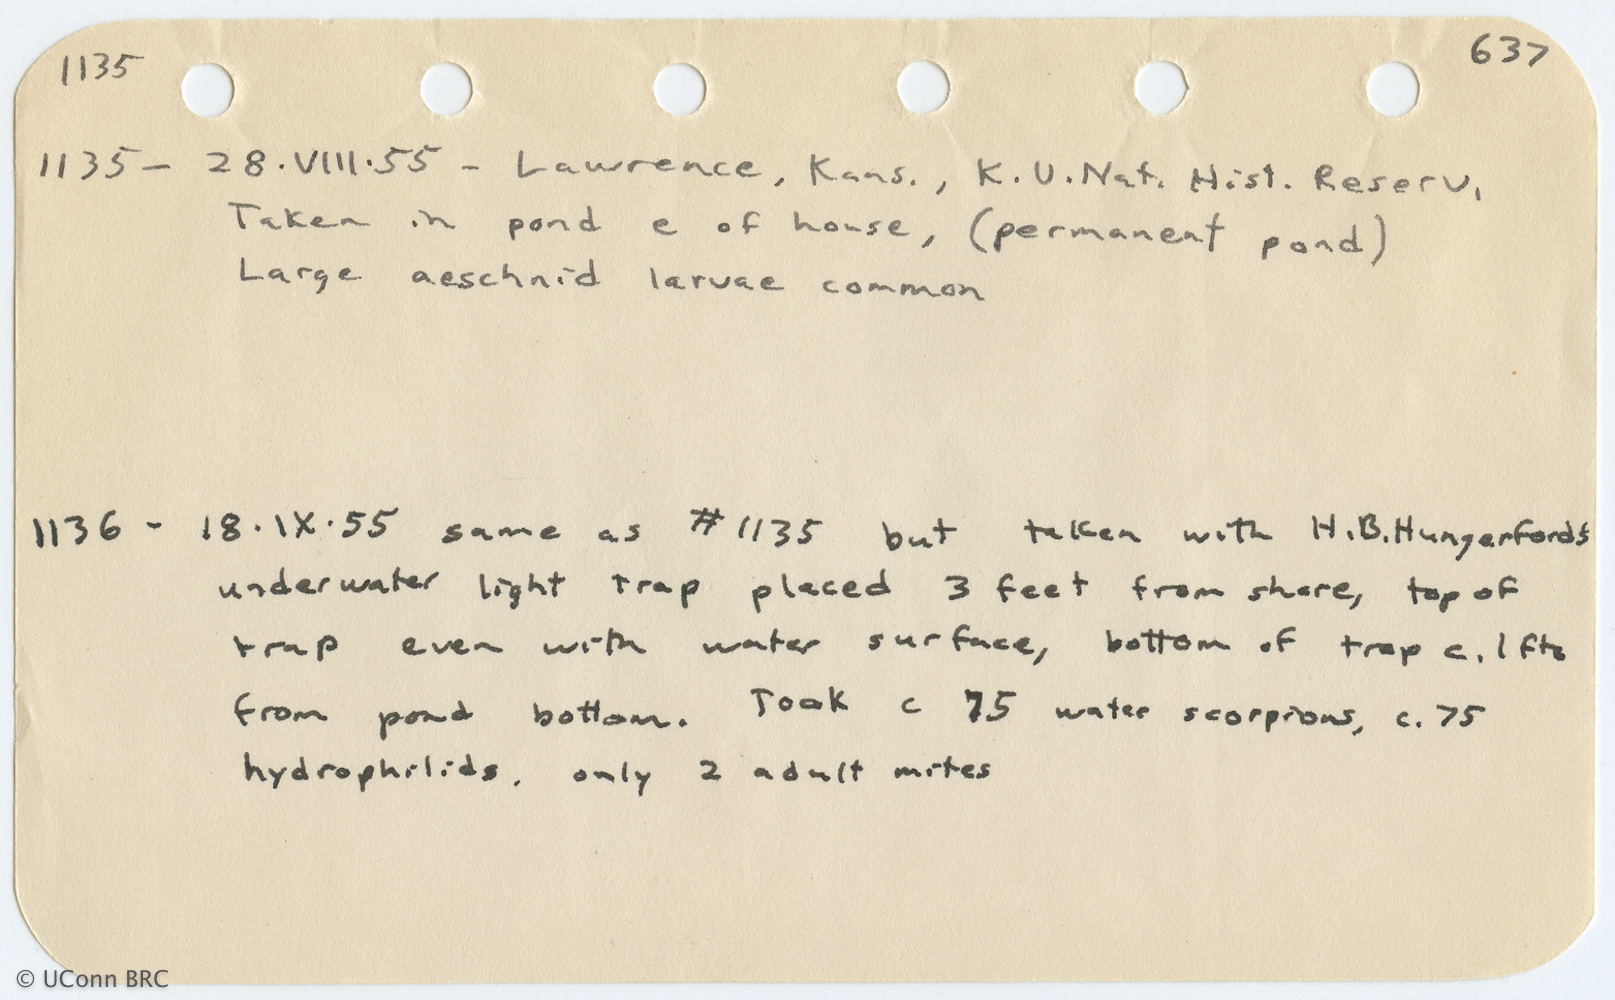 1135 637
1135 - 28.VIII.55 - Lawrence, Kans., K.U.Nat. Hist. Reserv.
Taken in pond e of house, (permanent pond)
Large aeschnid larvae common
1136 - 18.IX.55 same as #1135 but taken with H.B.Hungerford's
underwater light trap placed 3 feet from shore, top of
trap even with water surface, bottom of trap c. 1 ft
from pond bottom. Took c 75 water scorpions, c. 75
hydrophilids. only 2 adult mites
© UConn BRC